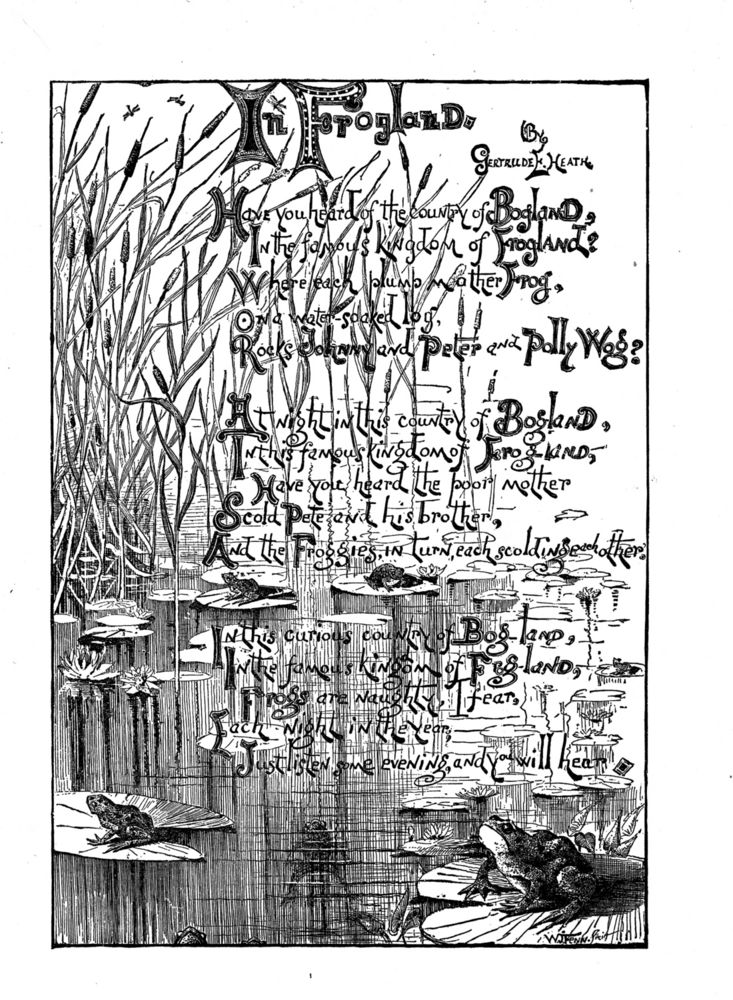 In Frogland.
By
Gertrude E. Heath.
Have you heard of the country of Bogland,
In the famous kingdom of Frogland?
Where each plump mother Frog,
On a water-soaked log,
Rocks Johnny and Peter and Polly Wog?
At night in this country of Bogland,
In this famous kingdom of Frog-land,—
Have you heard the poor mother
Scold Pete and his brother,
And the Froggies, in turn, each scolding each other.
In this curious country of Bog-land,
In the famous kingdom of Frog-land,
Frogs are naughty, I fear,
Each night in the year,
Just listen some evening, and you will hear.
W.J. Fenn.
1